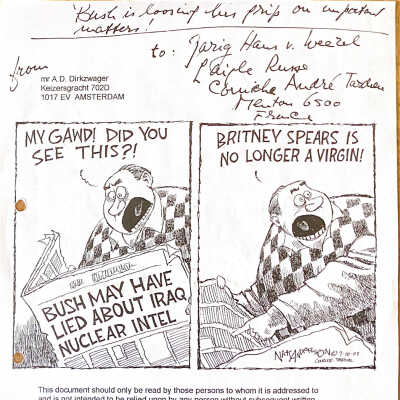 'Bush is loosing his grip on important
matters!'
from
to:
mr A.D. Dirkzwager
Keizersgracht 702D
1017 EV AMSTERDAM
Corniche André
Menton 6500
France
MY GAWD! DID YOU
SEE THIS?!
BUSH MAY HAVE
LIED ABOUT IRAQ
NUCLEAR INTEL
BRITNEY SPEARS IS
NO LONGER A VIRGIN!
This document should only be read by those persons to whom it is addressed to
and is not intended to be relied upon by any person without subsequent written